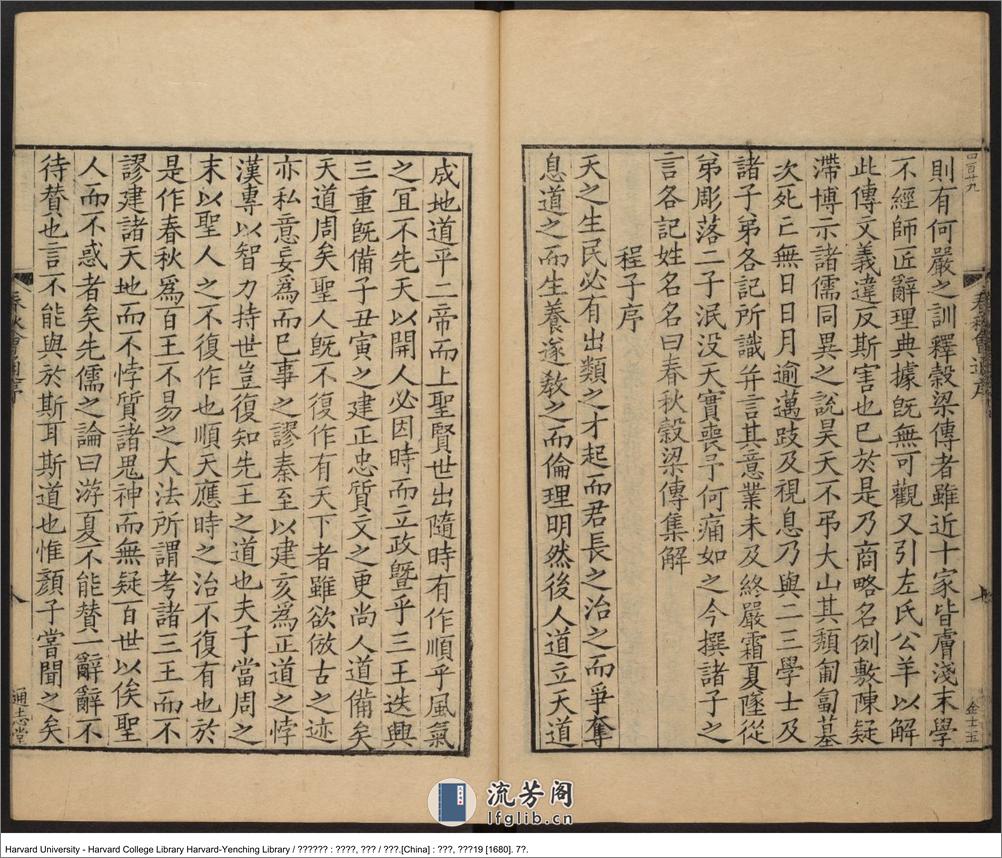 則有何嚴之訓釋穀梁傳者雖近十家皆膚淺末學
不經師匠辭理典據旣無可觀又引左氏公羊以解
此傳文義違反斯害也已於是乃商略名例敷陳疑
滯博示諸儒同異之說昊天不弔大山其頹匍匐墓
次死亡無日日月逾邁跂及視息乃與二三學士及
諸子弟各記所識幷言其意業未及終嚴霜夏墜從
弟彫落二子泯没天實喪予何痛如之今撰諸子之
言各記姓名名曰春秋穀梁傳集解
程子序
天之生民必有出類之才起而君長之治之而爭奪
息道之而生養遂敎之而倫理明然後人道立天道
成地道平二帝而上聖賢世出隨時有作順乎風氣
之宜不先天以開人必因時而立政曁乎三王迭興
三重旣備子丑寅之建正忠質文之更尚人道備矣
天道周矣聖人旣不復作有天下者雖欲倣古之迹
亦私意妄爲而已事之謬秦至以建亥爲正道之悖
漢專以智力持世豈復知先王之道也夫子當周之
末以聖人之不復作也順天應時之治不復有也於
是作春秋爲百王不易之大法所謂考諸三王而不
謬建諸天地而不悖質諸鬼神而無疑百世以俟聖
人而不惑者矣先儒之論曰游夏不能贊一辭辭不
待贊也言不能與於斯耳斯道也惟顏子嘗聞之矣
春秋會通序
八
通志堂
四百廿九
流芳阁
lfglib.cn
Harvard University - Harvard College Library Harvard-Yenching Library / ?????? : ????, ??? / ???.[China] : ???, ???19 [1680]. 7?.